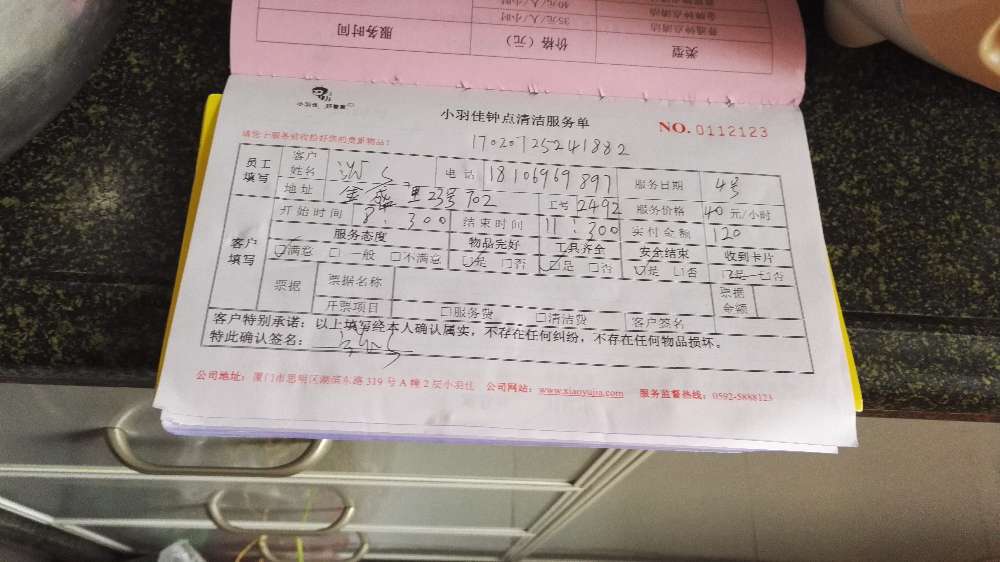 40元/人/小时
35元/人/小时
类型 价格（元） 服务时间
小羽佳
小羽佳钟点清洁服务单
NO. 0112123
请您上服务前收拾好您的贵重物品：
17020125241882
员工填写 客户姓名 电话 18106969897 服务日期 4号
地址 金 里23号702 工号 2492 服务价格 40元/小时
客户填写 开始时间 8:300 结束时间 11:300 实付金额 120
服务态度 物品完好 工具齐全 安全结束 收到卡片
☑满意 □一般 □不满意 ☑是 □否 ☑是 □否 ☑是 □否 □是 □否
票据 票据名称 票据金额
开票项目 □服务费 □清洁费 客户签名
客户特别承诺：以上填写经本人确认属实，不存在任何纠纷，不存在任何物品损坏。
特此确认签名：
公司地址：厦门市思明区湖滨东路319号A幢2层小羽佳 公司网站：www.xiaoyujia.com 服务监督热线：0592-5888123